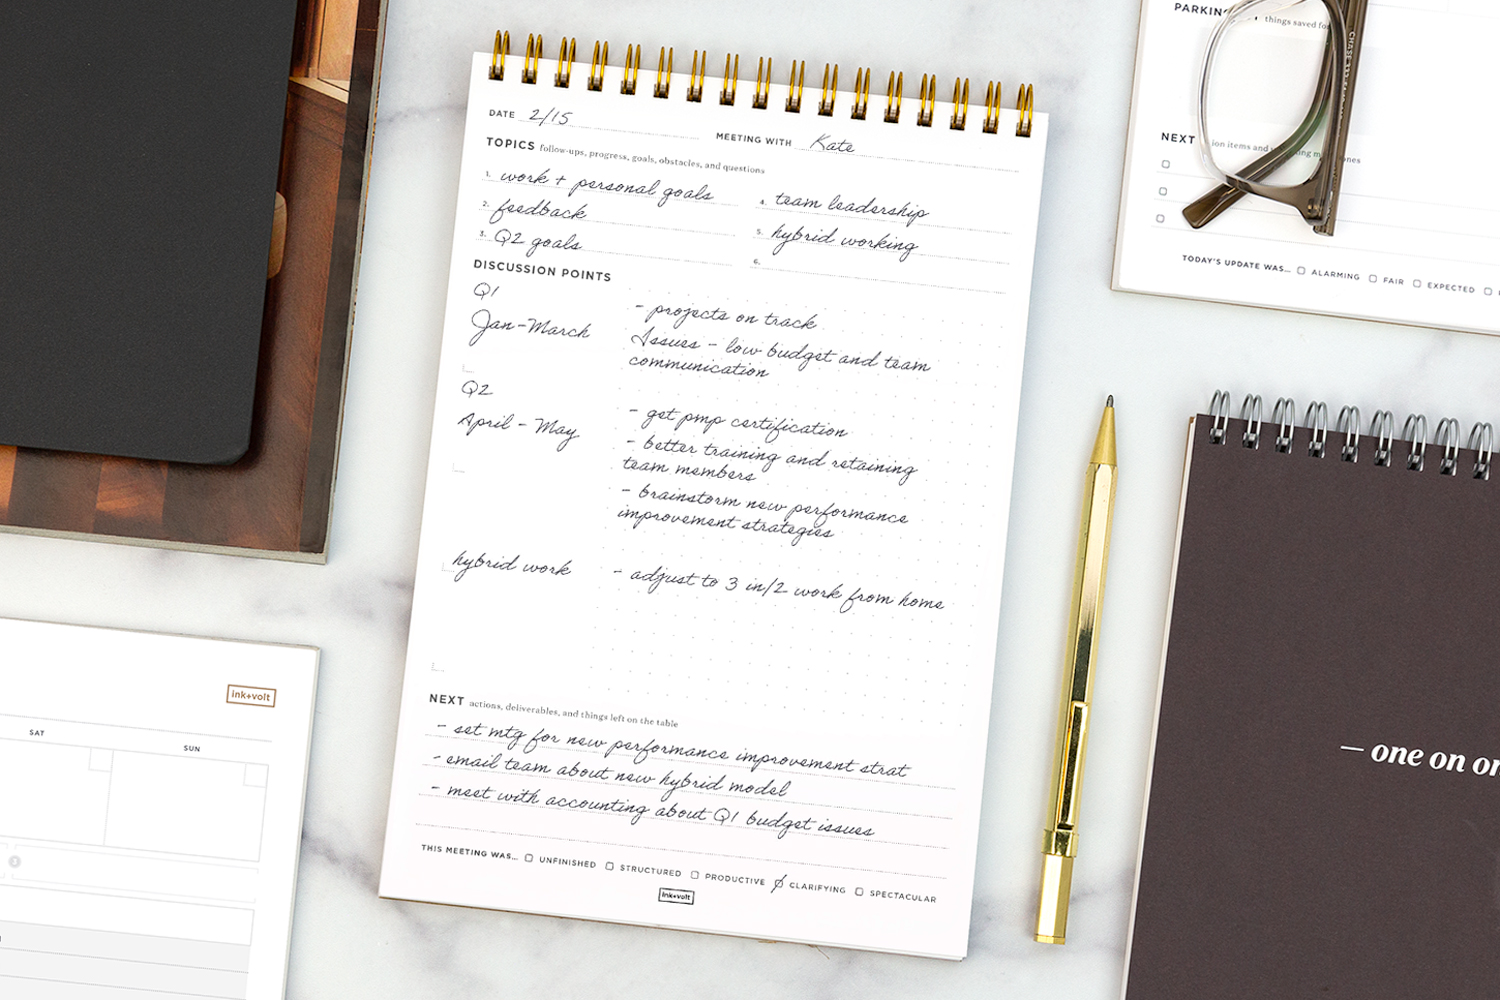 DATE 2/15
MEETING WITH Kate
TOPICS follow-ups, progress, goals, obstacles, and questions
1. work + personal goals
2. feedback
3. Q2 goals
4. team leadership
5. hybrid working
6.
DISCUSSION POINTS
Q1
Jan - March
- projects on track
Issues - low budget and team
communication
Q2
April - May
- get pmp certification
- better training and retaining
team members
- brainstorm new performance
improvement strategies
hybrid work
- adjust to 3 in/2 work from home
NEXT actions, deliverables, and things left on the table
- set mtg for new performance improvement strat
- email team about new hybrid model
- meet with accounting about Q1 budget issues
THIS MEETING WAS... UNFINISHED STRUCTURED PRODUCTIVE CLARIFYING SPECTACULAR
ink+volt
things saved for
NEXT
TODAY'S UPDATE WAS... ALARMING FAIR EXPECTED
— one on
ink+volt
SAT
SUN
3